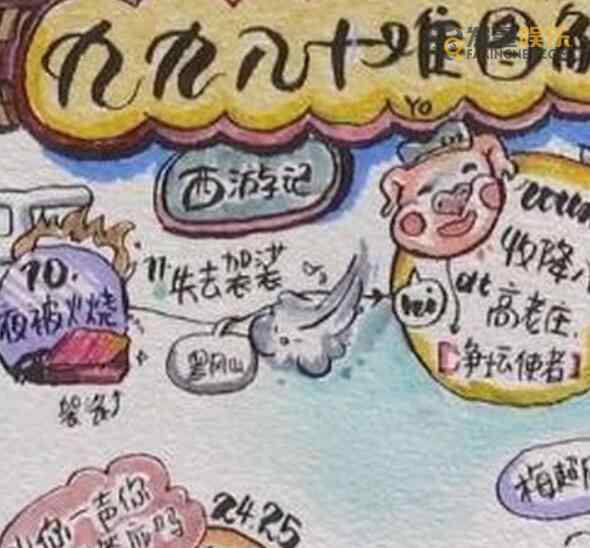 九九八十难图解
YO
西游记
10.
夜被火烧
袈裟
11失去袈裟
黑风山
收降八
at 高老庄.
【净坛使者】
你一声你
答应吗
24.25
梅超风